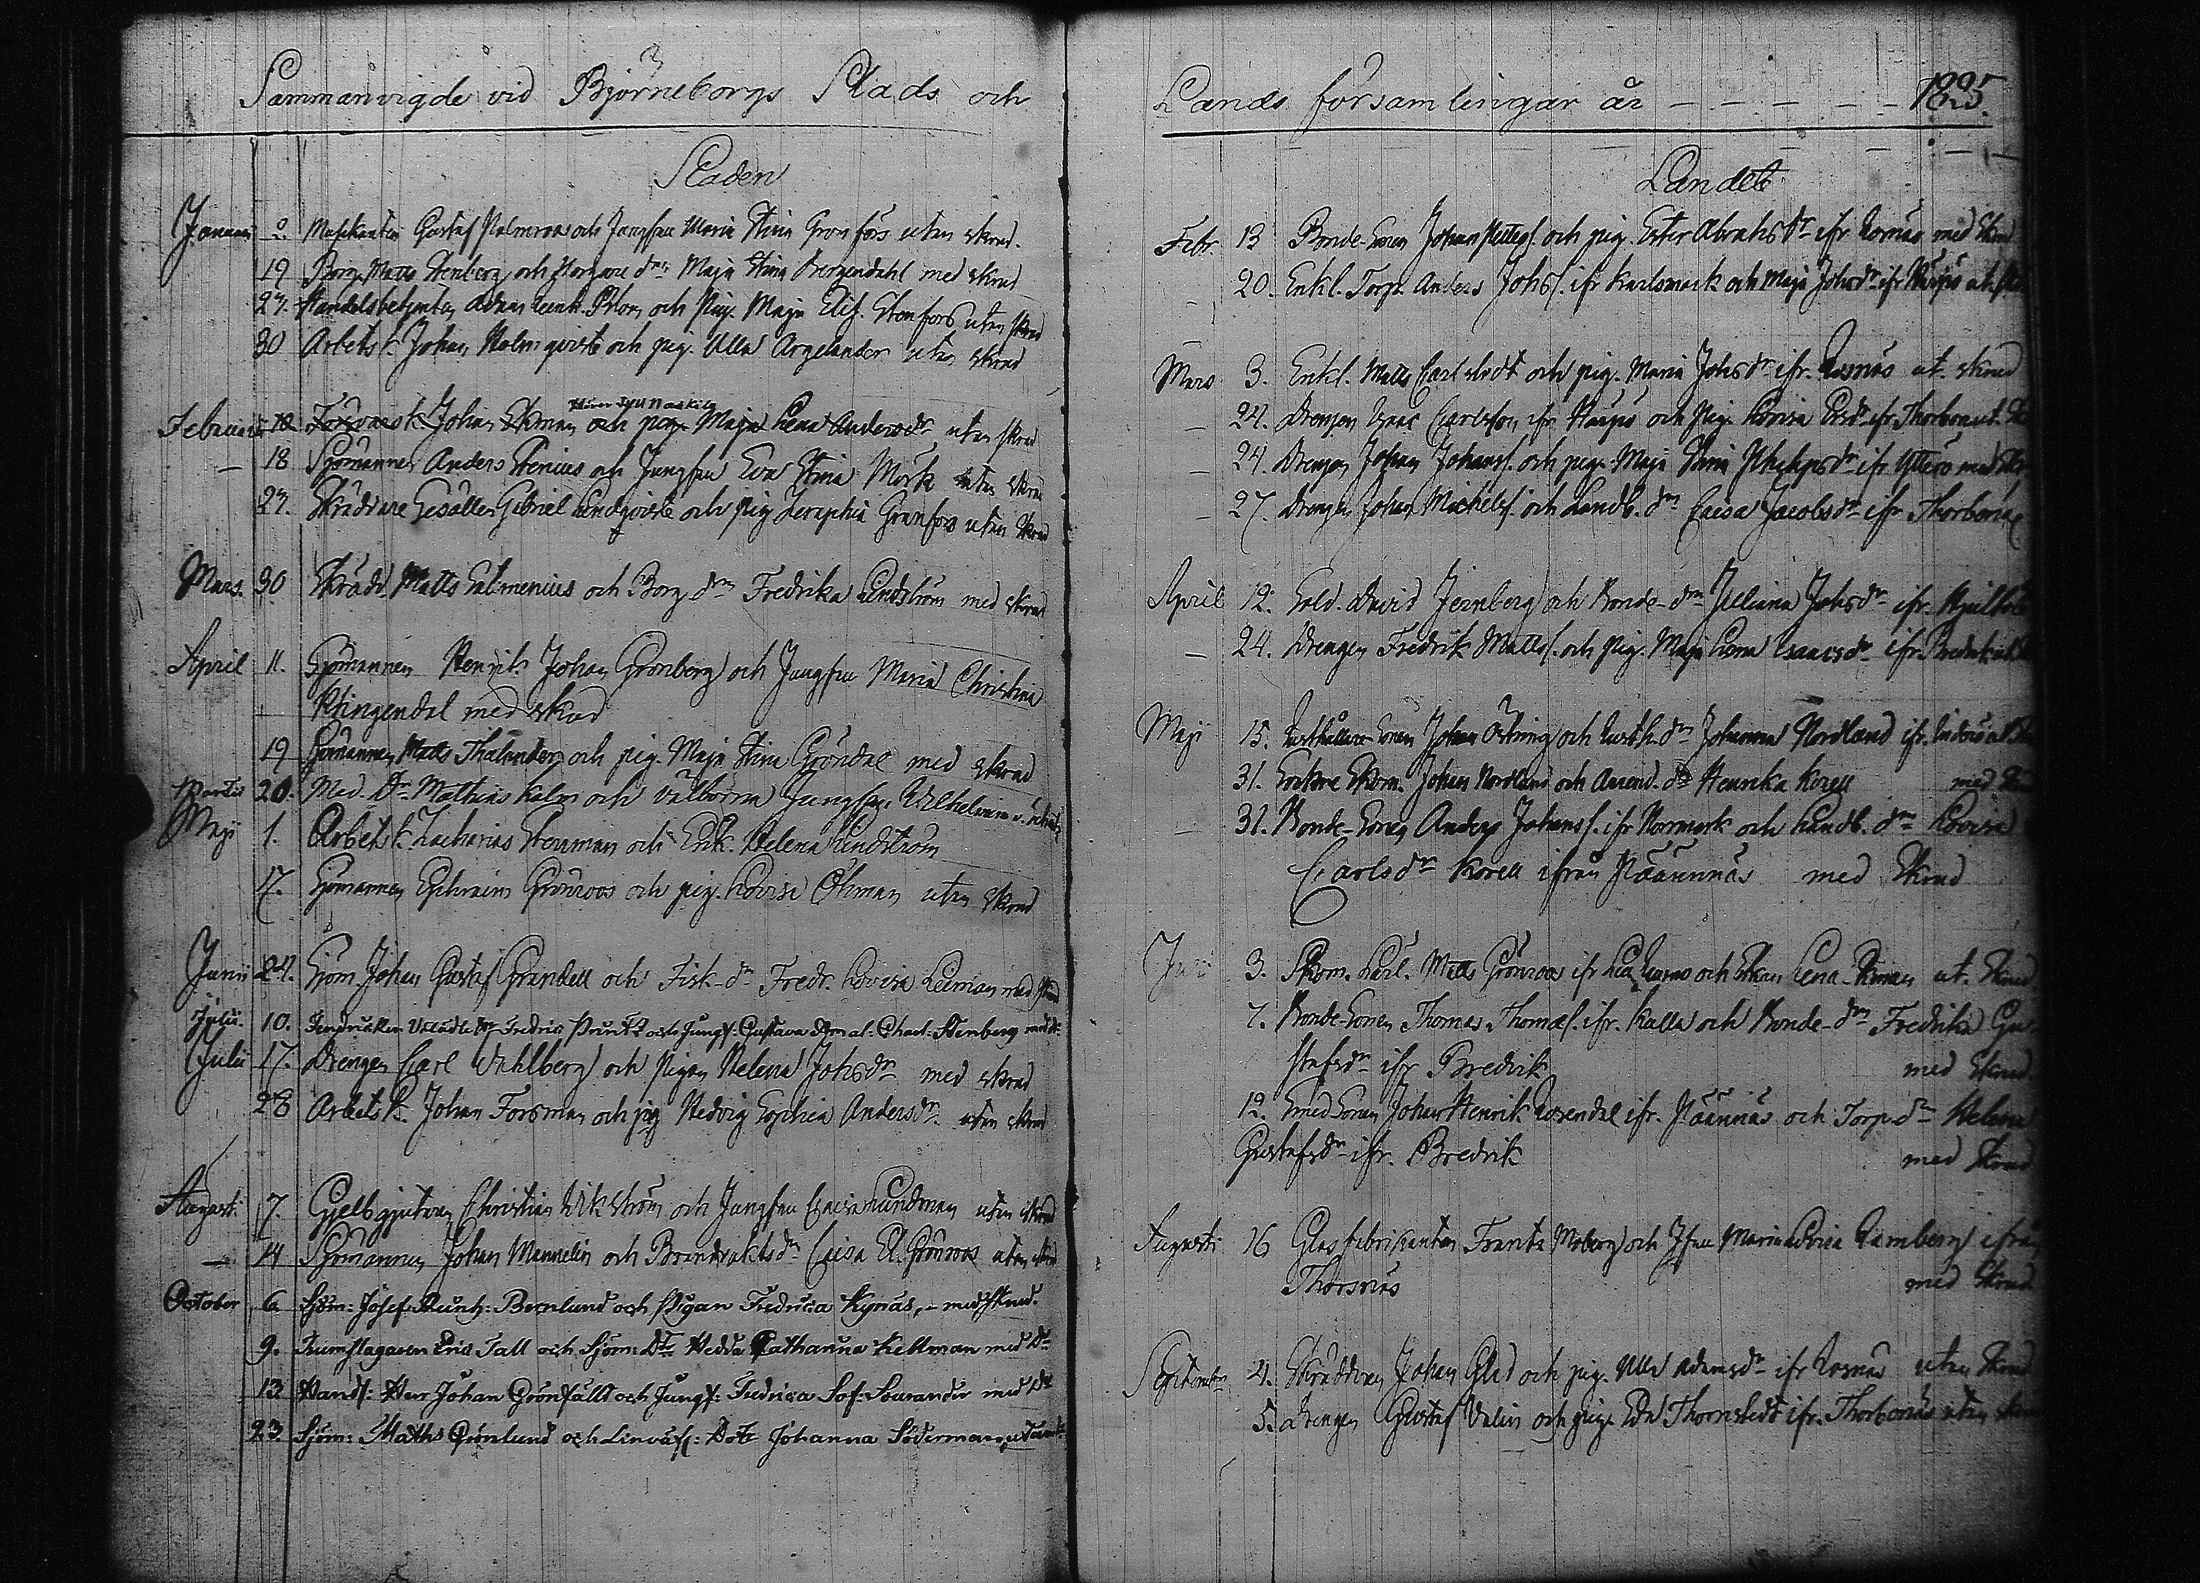 Sammanvigde vid Björneborgs Stads och
Staden
Januari 2. Musikanten Gustaf Palmroos och Jungfru Maria Stina Gronfors utan skrud.
19 Borg. Matts Stenberg och Borgare dr Maja Stina Bergendahl med skrud
27. Handelsbetjenten Adam och Pig. Maja Elis. Stenfors utan skrud
30 Arbetsk. Johan Holmqvist och pig. Ulla Argelander utan skrud
Februari 12 Johan Ekman och pigan Maja Lena Andersdr utan skrud
— 18 Sjömannen Anders Stenius och Jungfru Eva Stina Mörk utan skrud
27. Skräddare Gesällen Gabriel Lindqvist och pig Seraphia Granfors utan skrud
Mars. 30 Skrädd. Matts Salmenius och Borg. dr Fredrika Lindström med skrud
April 11. Sjömannen Henrik Johan Grönberg och Jungfru Maria Christina
Klingendal med skrud
19 Sjömannen Matts Thalander och pig. Maja Stina Gröndal med skrud
Martii 20. Med. Dr. Mathias Kalm och Välborna Jungfru Vilhelmina v.
Maji 1. Arbetsk. Zacharias Stenman och Enk. Helena Lundström
17. Sjömannen Ephraim Grönroos och pig. Lovisa Öhman utan skrud
Junii 24. Sjöm. Johan Gustaf Grandell och Fisk. dr Fredr. Lovisa Leeman med skrud
Julii. 10. Fredric och Jungf: Gustava Amal. Charl. Stenberg med do
Julii 17. Drengen Carl Vahlberg och Pigan Helena Johsdr med skrud
28 Arbetsk. Johan Forsman och pig Hedvig Sophia Andersdr utan skrud
Augusti 7. Gjelbgjutaren Christian Vikström och Jungfru Caisa Lundman utan skrud
— 14 Sjömannen Johan Mannelin och Brandvaktsdr Caisa El. Grönroos utan skrud
October 6. Sjöm: Josef Bernlund och Pigan Fredrica Kynäs, – med skrud.
9. Trumslagaren Eric Tall och Sjöm: Dr Hedda Catharina Kellman med Do
13 Handl: Herr Johan Grönfält och Jungf: Fredrica Sof: Sourander med Do
23. Sjöm: Maths Grönlund och Linväf: Dotr Johanna Söderman, utan do
Lands församlingar år – – – – – 1825.
Landet
Febr. 13 Bonde-Sonen Johan och pig. Ester Abrahsdr ifr Rosnäs med Skrud
20. Enkl. Torp. Anders Johs. ifr Karlsmark och Maja Johsdr ifr Harjus ut. skr
Mars 3. Enkl. Matts Carlstedt och pig. Maria Johsdr ifr. Rosnäs ut. skrud
— 24. Drengen Isaac Carlsson ifr Harjus och Pig. Lovisa ifr. Thorbonäs ut.
— 24. Drengen Johan Johanss. och pig. Maja Stina Philipsdr ifr. Ytterö med skr
— 27. Drengen Johan Michels. och Landb. dr Caisa Jacobsdr ifr Thorbonäs
April 12. Sold. David Jernberg och Bonde-dr Juliana Johsdr ifr.
— 24. Drengen Fredrik Matts. och pig. Maja Lena Isaacsdr ifr. Bredvik ut.
Maji 15. Rusthållare Sonen Johan och Rusth. dr Johanna Nordlund ifr.
31. Johan Nordlund och dr Henrika Korell med skrud
— 31. Bonde-Sonen Anders Johanss. ifr Norrmark och Landb. dr Lovisa
Carlsdr Korell ifrån Påånnäs med Skrud
Juni 3. Matts Grönroos ifr och Enkan Lena ut. Skrud
7. Bonde-Sonen Thomas Thomas. ifr. Kalla och Bonde-dr Fredrika Gu-
stafsdr ifr Bredvik med Skrud.
12. Smed Sonen Johan Henrik Rosendal ifr. Påånnäs och Torp. dr Helena
Gustafsdr ifr. Bredvik med Skrud
Augusti 16 Glasfabrikanten Frants Moberg och Jfru Maria Lovisa ifrån
Thorsnäs med Skrud
September 4. Skräddaren Johan Glad och pig. Ulla Adamsdr ifr Rosnäs utan Skrud
5. Drengen Gustaf Valin och pig. Eva Thornstedt ifr. Thorbonäs utan skrud